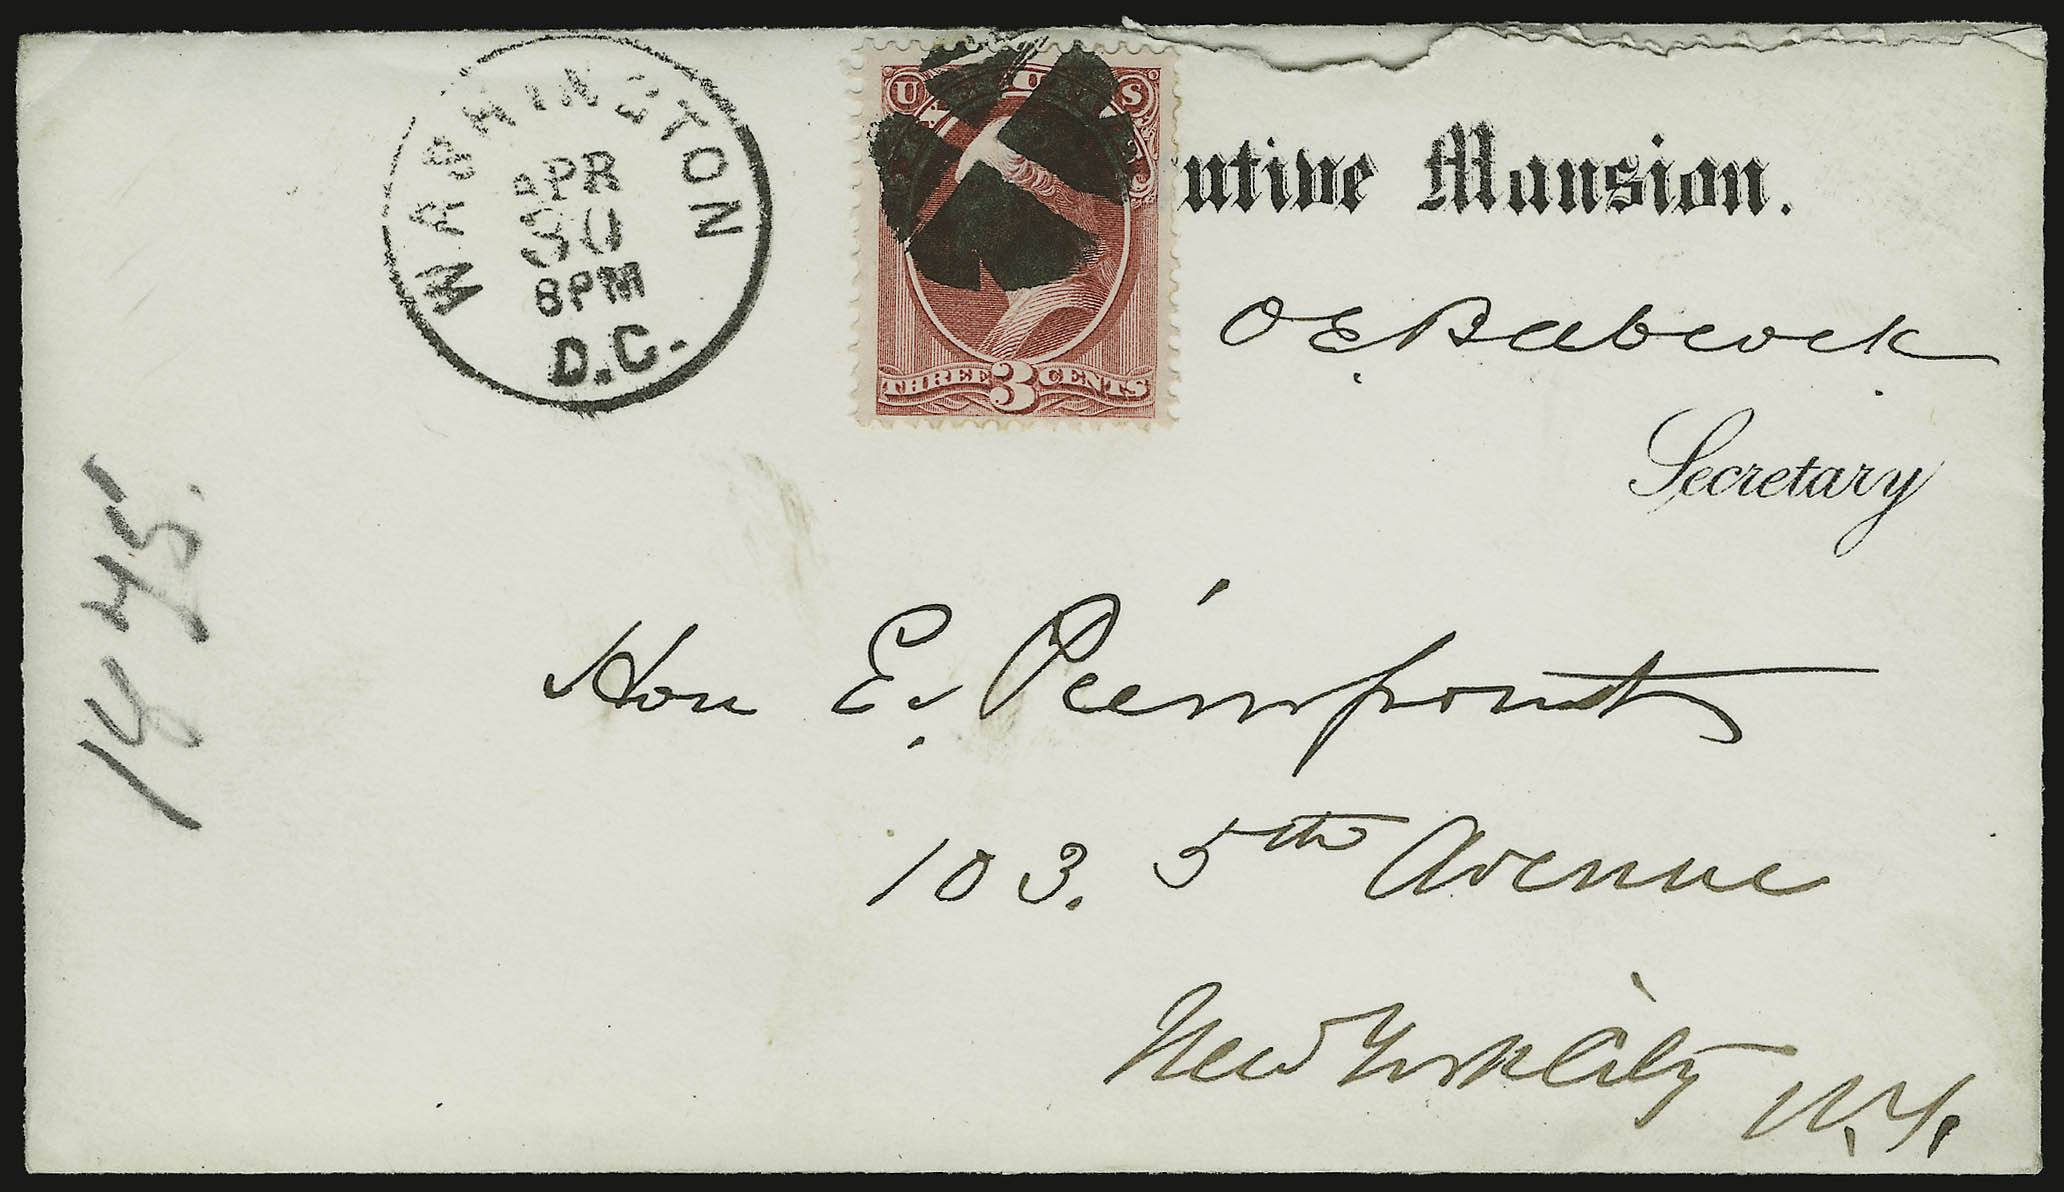 WASHINGTON
APR
30
8PM
D.C.
U S
THREE 3 CENTS
utive Mansion.
O E Babcock
Secretary
1875.
Hon E. Pierrepont
103. 5th Avenue
New York City N.Y.